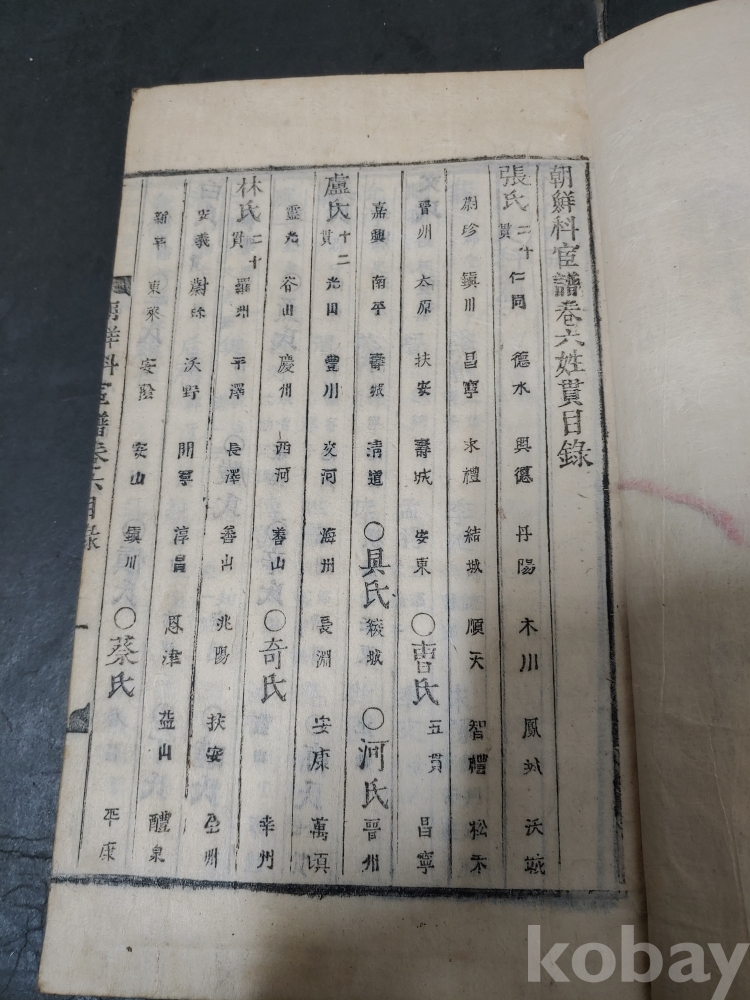 朝鮮科宦譜卷六姓貫目錄
張氏 二十貫 仁同 德水 興德 丹陽 木川 鳳城 沃
蔚珍 鎭川 昌寧 求禮 結城 順天 智禮 松禾
晋州 太原 扶安 壽城 安東 ○曺氏 五貫 昌寧
嘉興 南平 壽城 清道 ○具氏 綾城 ○河氏 晉州
盧氏 十二貫 光田 豊川 交河 海州 長淵 安康 萬頃
靈光 谷山 慶州 西河 善山 ○奇氏 幸州
林氏 二十貫 羅州 平澤 長澤 善山 兆陽 扶安 全州
安義 蔚珍 沃野 開寧 淳昌 恩津 益山 醴泉
新平 東萊 安陰 安山 鎭川 ○蔡氏 平康
朝鮮科宦譜卷六目錄 一
kobay